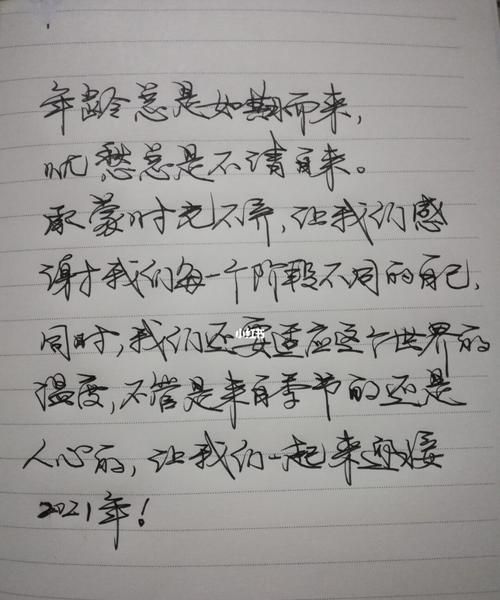 年龄总是如期而来，
忧愁总是不请自来。
承蒙时光不弃，让我们感
谢我们每一个阶段不同的自己，
同时，我们还要适应这个世界的
温度，不管是来自季节的还是
人心的，让我们一起来迎接
2021年！
小红书